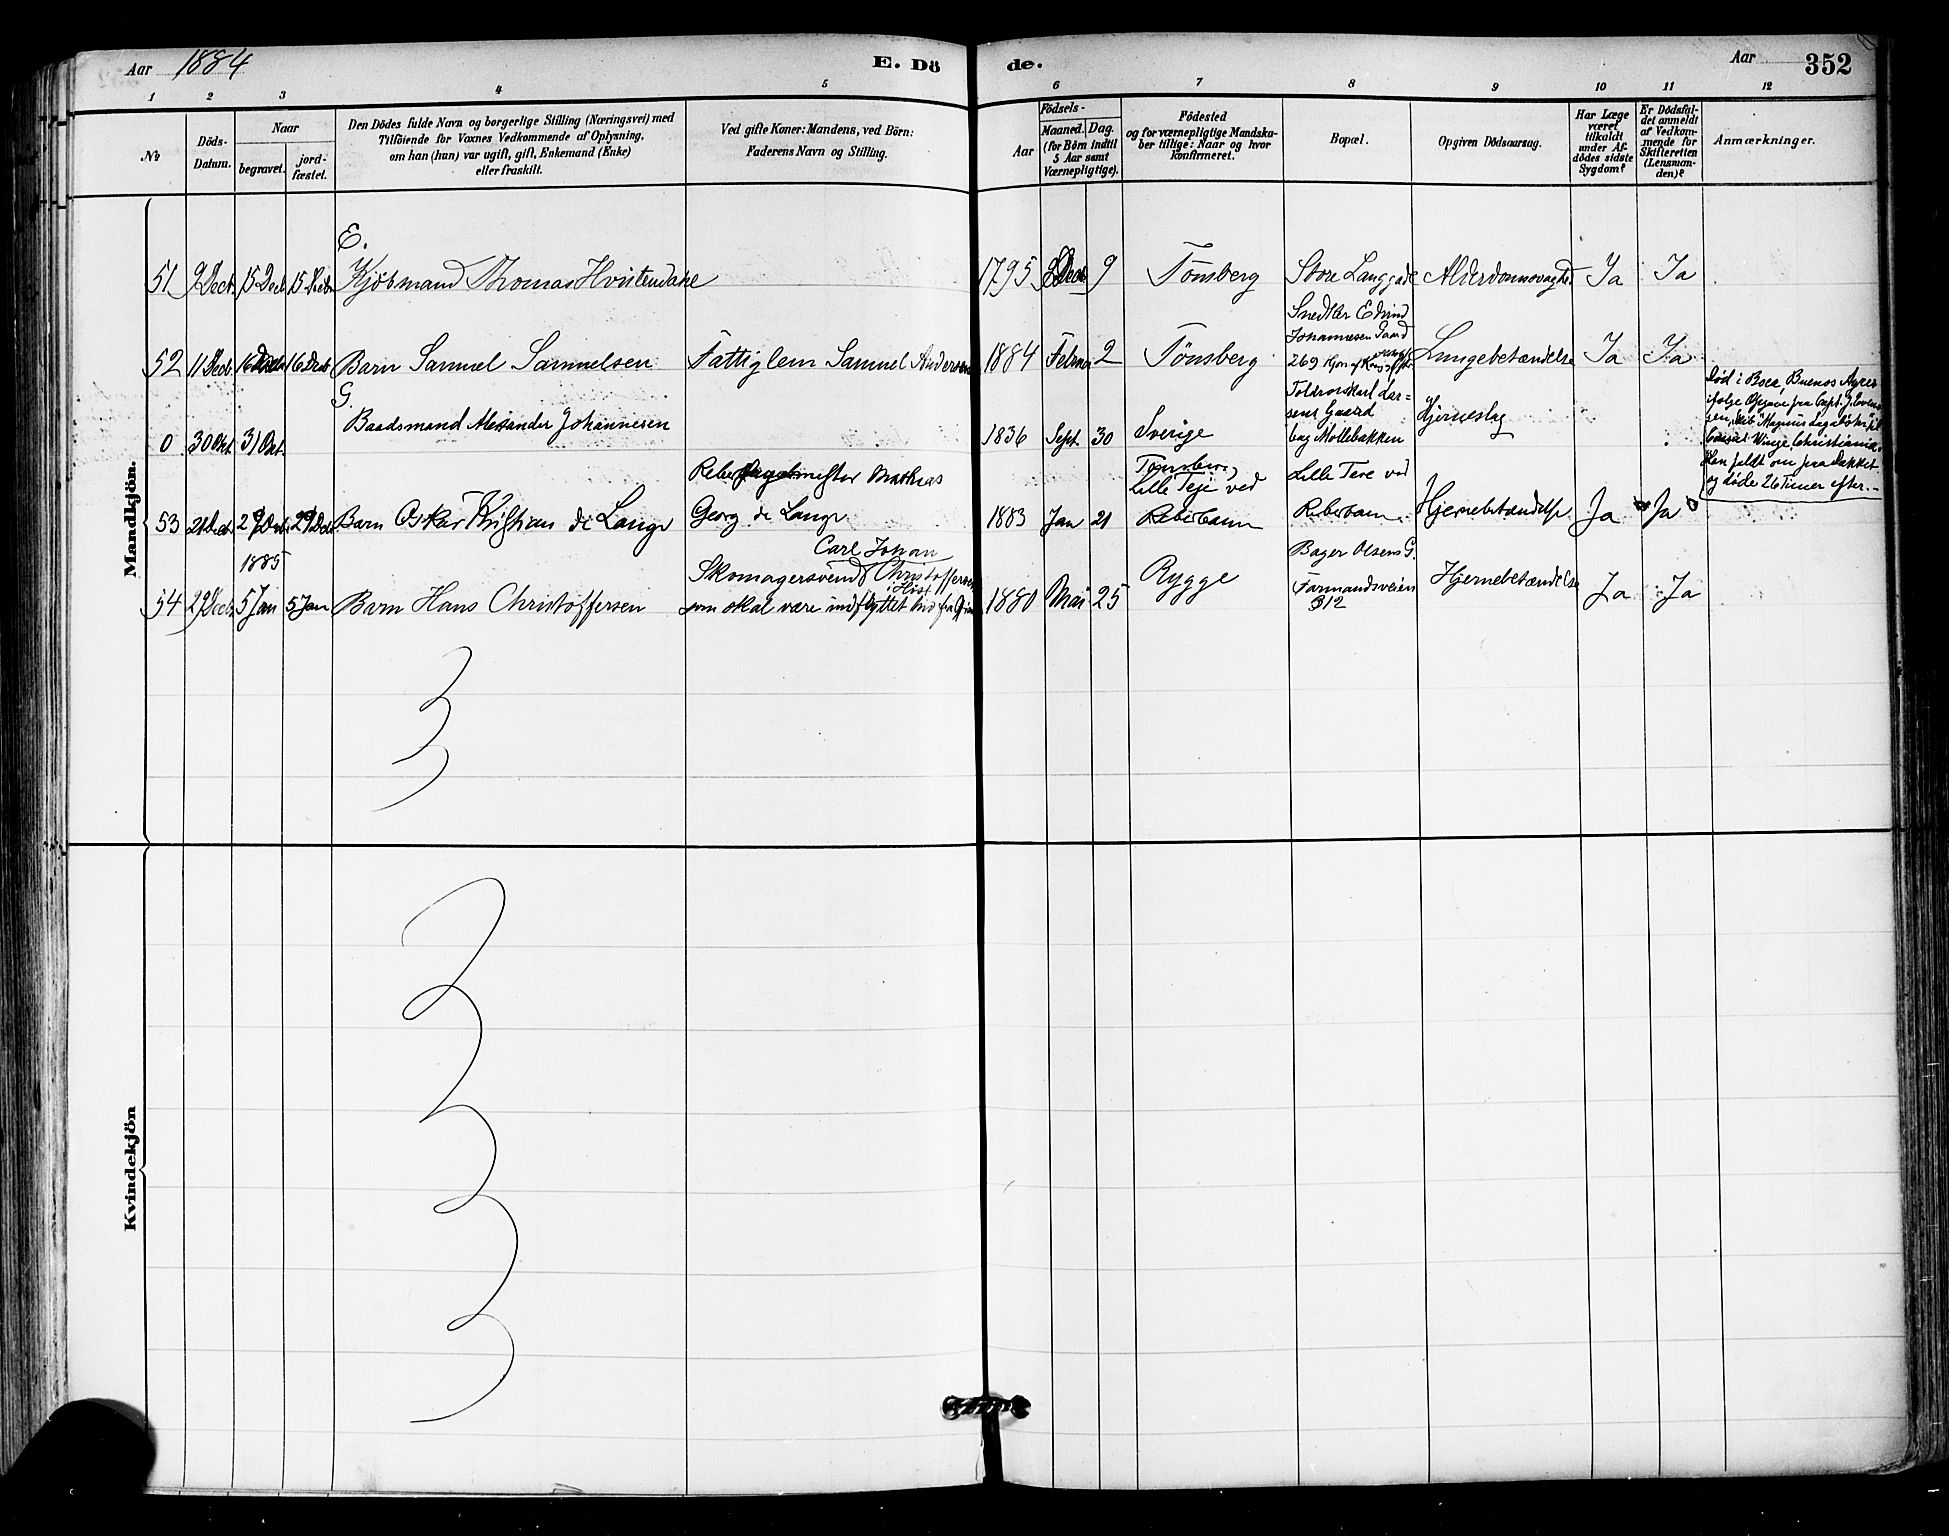 Aar 1884
E. Dö
de.
Aar
352
1 2 3 4 5 6 7 8 9 10 11 12
№
Döds-
Datum.
Naar
begravet.
jord-
fæstet.
Den Dödes fulde Navn og borgerlige Stilling (Næringsvei) med
Tilföiende for Voxnes Vedkommende af Oplysning,
om han (hun) var ugift, gift, Enkemand (Enke)
eller fraskilt.
Ved gifte Koner: Mandens, ved Börn:
Faderens Navn og Stilling.
Födsels-
Aar
Maaned. Dag.
(for Börn indtil
5 Aar samt
Værnepligtige).
Födested
og for værnepligtige Mandska-
ber tillige: Naar og hvor
konfirmeret.
Bopæl.
Opgiven Dödsaarsag.
Har Læge
været
tilkaldt
under Af-
dödes sidste
Sygdom?
Er Dödsfal-
det anmeldt
af Vedkom-
mende for
Skifteretten
(Lensman-
den)?
Anmærkninger.
Mandkjön.
E.
51 9 Decb. 15 Decb 15 Decb Kjöbmand Thomas Hvistendahl 1795 Decb 9 Tönsberg Store Langgade Alderdomssvaghed Ja Ja
Snedker Edvind
Johannesen Gaard
52 11 Decb. 16 Decb 16 Decb Barn Samuel Samuelsen Fattiglem Samuel Andersen 1884 Februar 2 Tönsberg 269 Lungebetændelse Ja Ja
G.
0 30 Okt. 31 Okt. Baadsmand Alexander Johannesen 1836 Sept. 30 Sverige
sens Gaard
bag Möllebakken
Hjerneslag
Död i Boca, Buenos Ayres
ifølge Opgave fra Capt.
Winge, Christiania.
Han faldt om paa Dækket
og döde 26 Timer efter.-
Mathias
53 21 Decb. 29 Decb. 29 Decb Barn Oskar Kristian de Lange Georg de Lange 1883 Jan 21
Tönsberg
Lille Teje ved
Reberbanen
Lille Teie ved
Reberbanen
Hjernebetændelse Ja Ja
1885
54 29 Decb. 5 Jan 5 Jan Barn Hans Christoffersen
Carl Johan
Skomagersvend Christoffersen
som skal være indflyttet hid fra
1880 Mai 25 Rygge
Bager Olsens G.
Farmandsveien
312
Hjernebetændelse Ja Ja
Kvindekjön